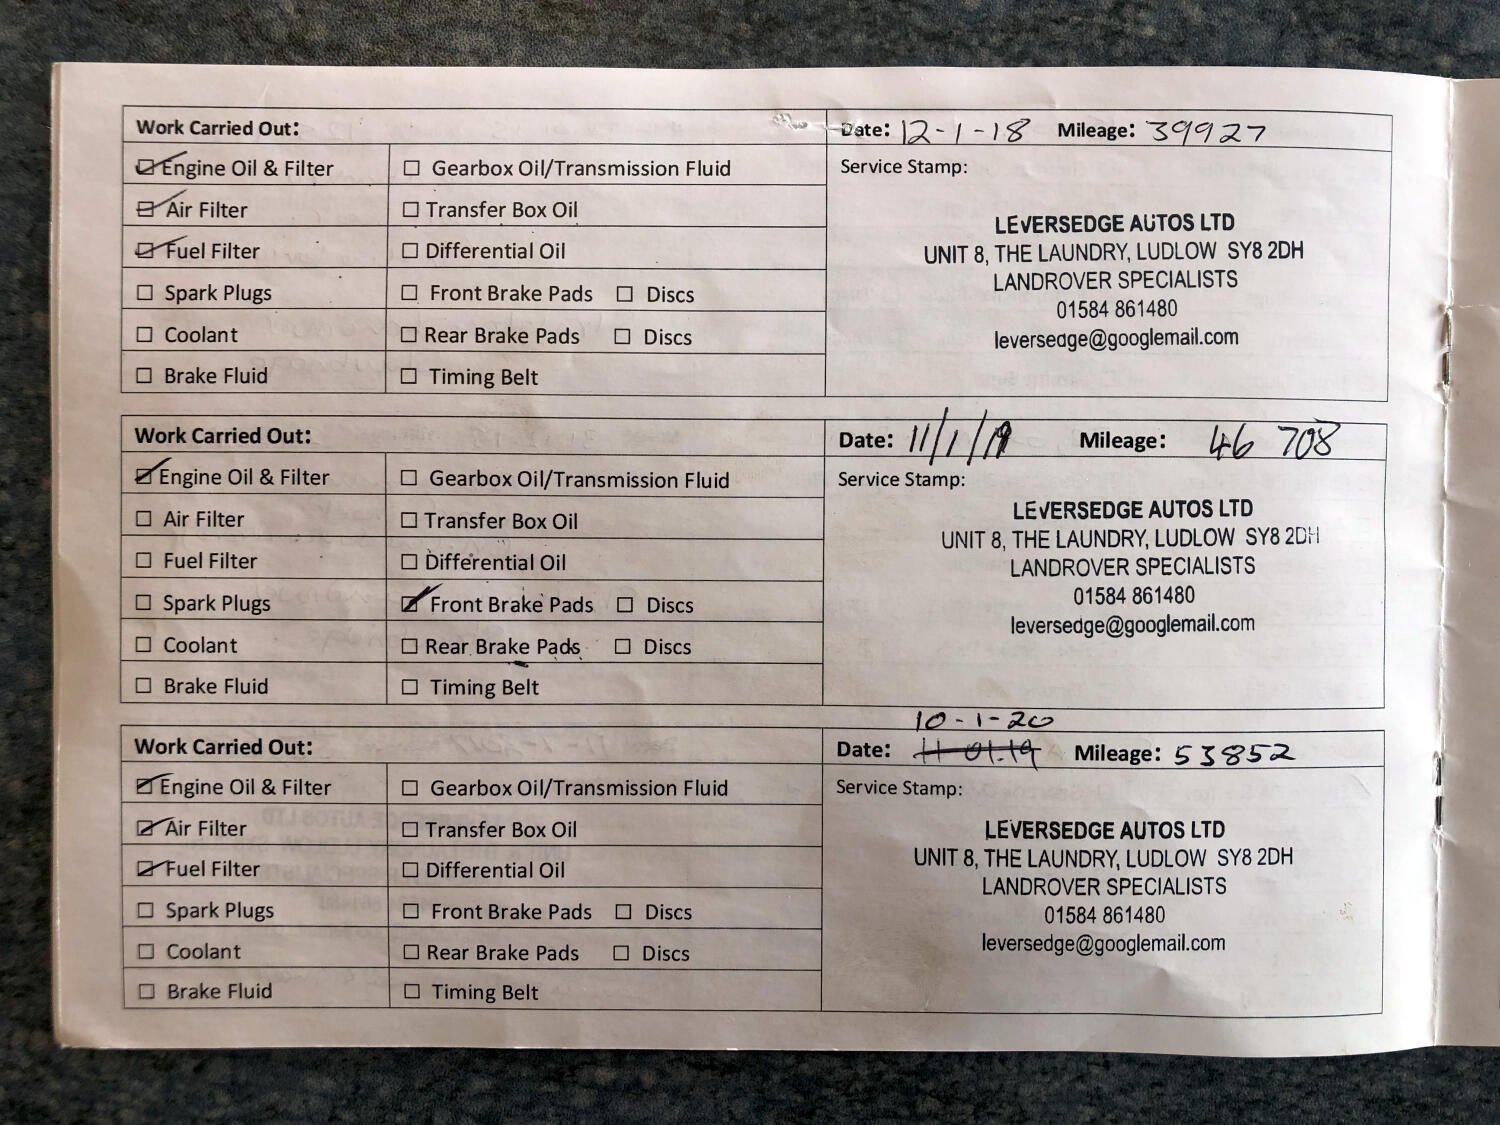 Work Carried Out: Date: 12-1-18 Mileage: 39927
☑ Engine Oil & Filter ☐ Gearbox Oil/Transmission Fluid Service Stamp:
☑ Air Filter ☐ Transfer Box Oil
☑ Fuel Filter ☐ Differential Oil
☐ Spark Plugs ☐ Front Brake Pads ☐ Discs
☐ Coolant ☐ Rear Brake Pads ☐ Discs
☐ Brake Fluid ☐ Timing Belt
LEVERSEDGE AUTOS LTD
UNIT 8, THE LAUNDRY, LUDLOW SY8 2DH
LANDROVER SPECIALISTS
01584 861480
leversedge@googlemail.com
Work Carried Out: Date: 11/1/19 Mileage: 46 708
☑ Engine Oil & Filter ☐ Gearbox Oil/Transmission Fluid Service Stamp:
☐ Air Filter ☐ Transfer Box Oil
☐ Fuel Filter ☐ Differential Oil
☐ Spark Plugs ☑ Front Brake Pads ☐ Discs
☐ Coolant ☐ Rear Brake Pads ☐ Discs
☐ Brake Fluid ☐ Timing Belt
LEVERSEDGE AUTOS LTD
UNIT 8, THE LAUNDRY, LUDLOW SY8 2DH
LANDROVER SPECIALISTS
01584 861480
leversedge@googlemail.com
10-1-20
Work Carried Out: Date: 11-01.19 Mileage: 53852
☑ Engine Oil & Filter ☐ Gearbox Oil/Transmission Fluid Service Stamp:
☑ Air Filter ☐ Transfer Box Oil
☑ Fuel Filter ☐ Differential Oil
☐ Spark Plugs ☐ Front Brake Pads ☐ Discs
☐ Coolant ☐ Rear Brake Pads ☐ Discs
☐ Brake Fluid ☐ Timing Belt
LEVERSEDGE AUTOS LTD
UNIT 8, THE LAUNDRY, LUDLOW SY8 2DH
LANDROVER SPECIALISTS
01584 861480
leversedge@googlemail.com